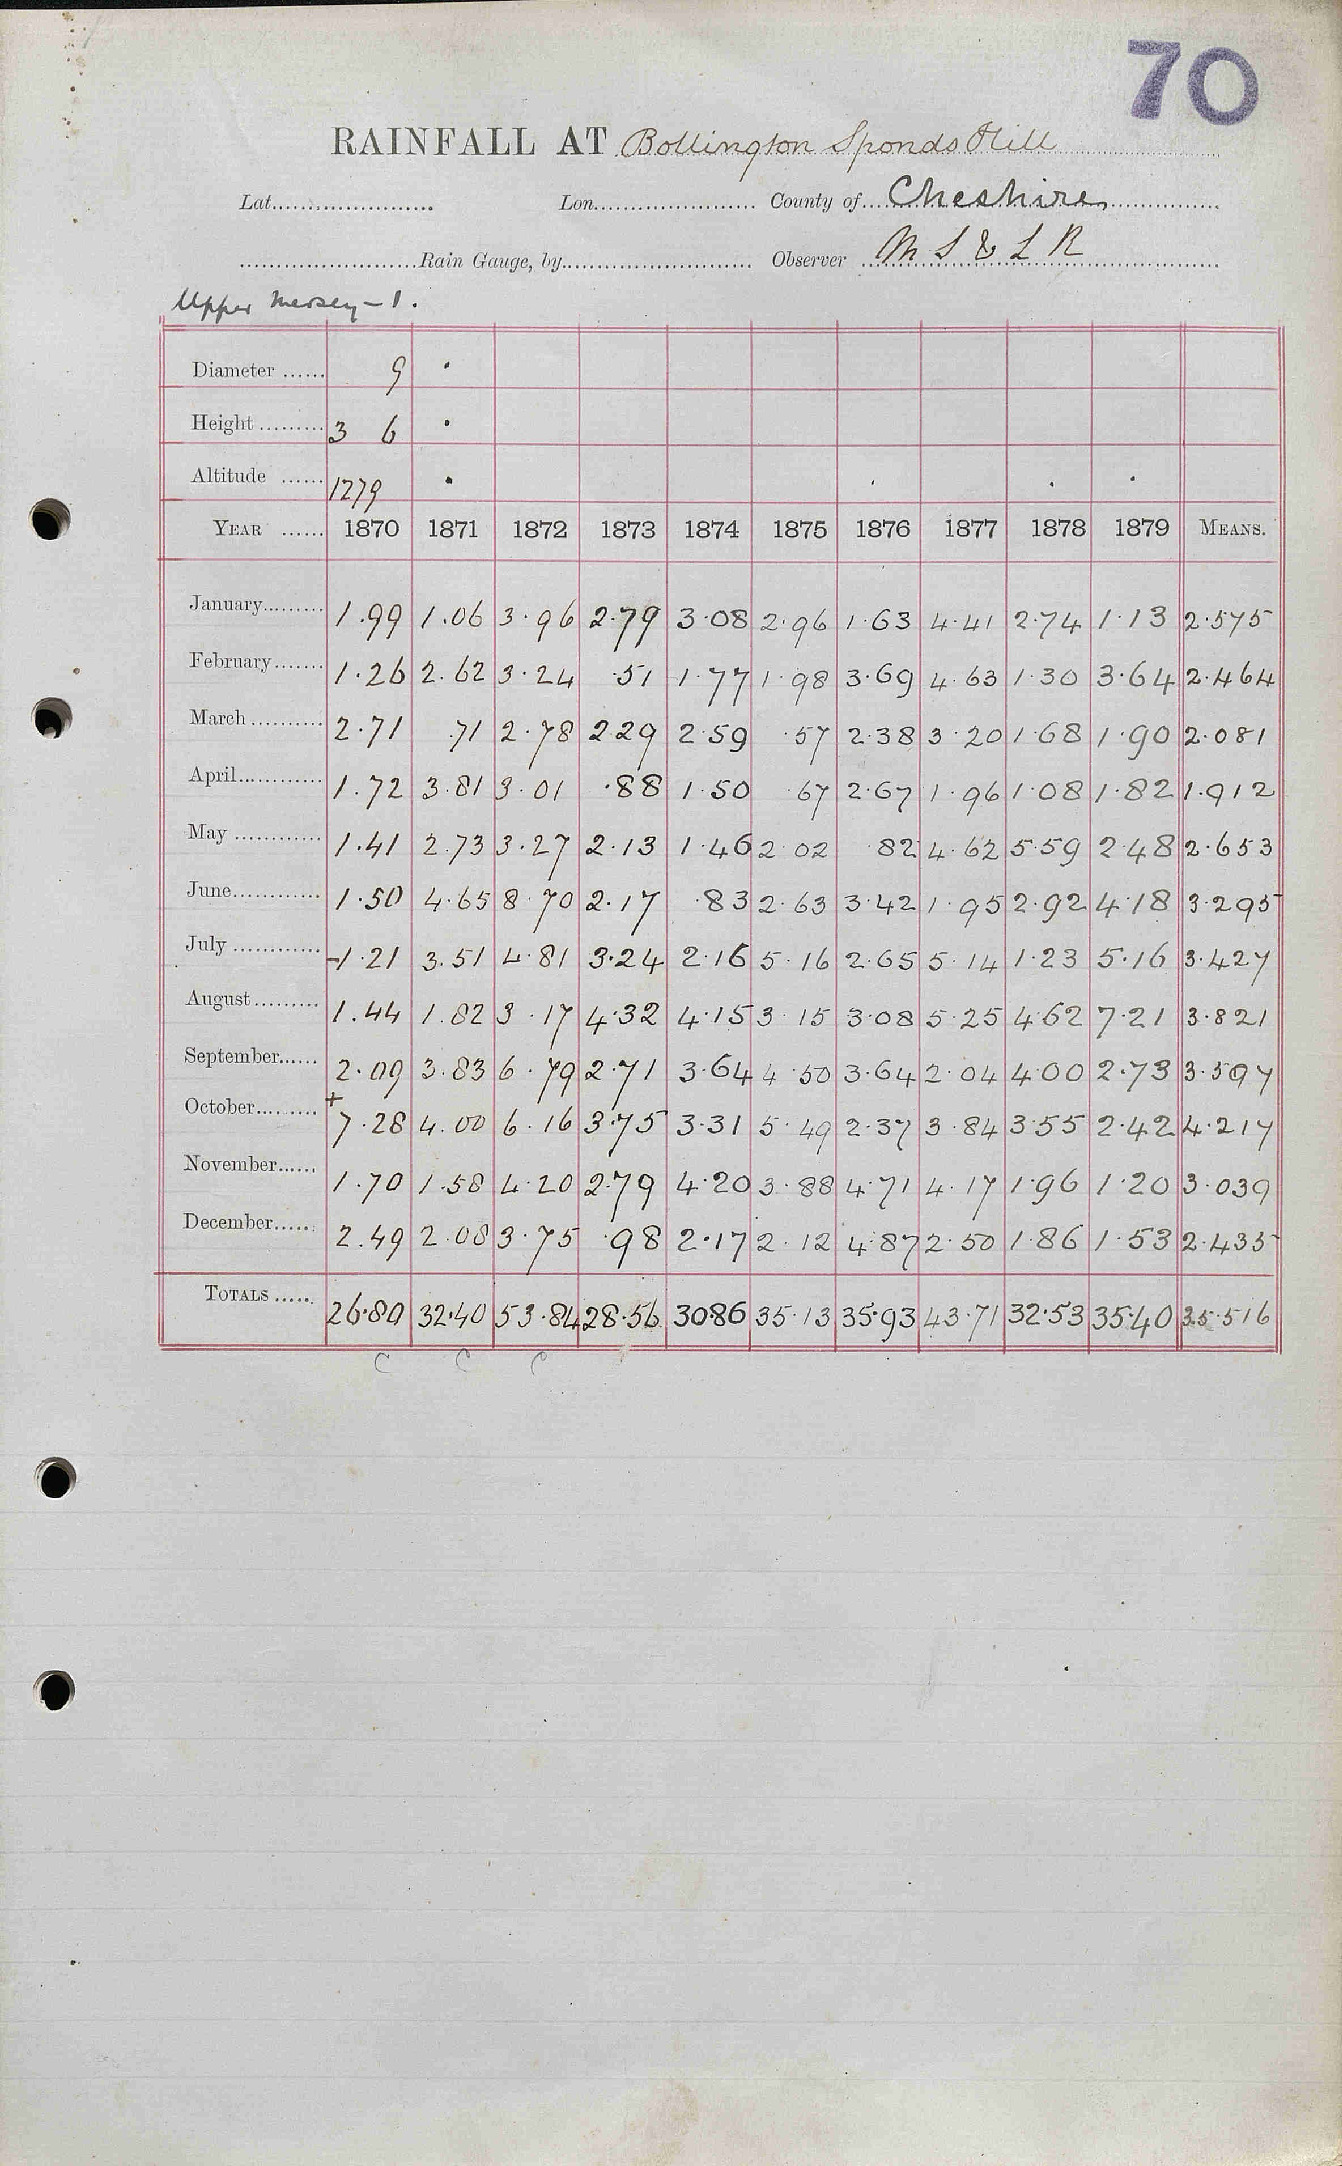 70
RAINFALL AT Bollington Sponds Hill
Lat...................... Lon...................... County of... Cheshire
......................Rain Gauge, by...................... Observer M S & L R
Upper Mersey - 1.
Diameter ...... 9 ·
Height ......... 3 6 ·
Altitude ...... 1279 ·
YEAR ...... 1870 1871 1872 1873 1874 1875 1876 1877 1878 1879 MEANS.
January......... 1.99 1.06 3.96 2.79 3.08 2.96 1.63 4.41 2.74 1.13 2.575
February....... 1.26 2.62 3.24 .51 1.77 1.98 3.69 4.63 1.30 3.64 2.464
March .......... 2.71 .71 2.78 2.29 2.59 .57 2.38 3.20 1.68 1.90 2.081
April............ 1.72 3.81 3.01 .88 1.50 .67 2.67 1.96 1.08 1.82 1.912
May ............ 1.41 2.73 3.27 2.13 1.46 2.02 .82 4.62 5.59 2.48 2.653
June............ 1.50 4.65 8.70 2.17 .83 2.63 3.42 1.95 2.92 4.18 3.295
July ............ -1.21 3.51 4.81 3.24 2.16 5.16 2.65 5.14 1.23 5.16 3.427
August......... 1.44 1.82 3.17 4.32 4.15 3.15 3.08 5.25 4.62 7.21 3.821
September...... 2.09 3.83 6.79 2.71 3.64 4.50 3.64 2.04 4.00 2.73 3.597
October......... +7.28 4.00 6.16 3.75 3.31 5.49 2.37 3.84 3.55 2.42 4.217
November...... 1.70 1.58 4.20 2.79 4.20 3.88 4.71 4.17 1.96 1.20 3.039
December...... 2.49 2.08 3.75 .98 2.17 2.12 4.87 2.50 1.86 1.53 2.435
TOTALS ..... 26.80 32.40 53.84 28.56 30.86 35.13 35.93 43.71 32.53 35.40 35.516
C C C